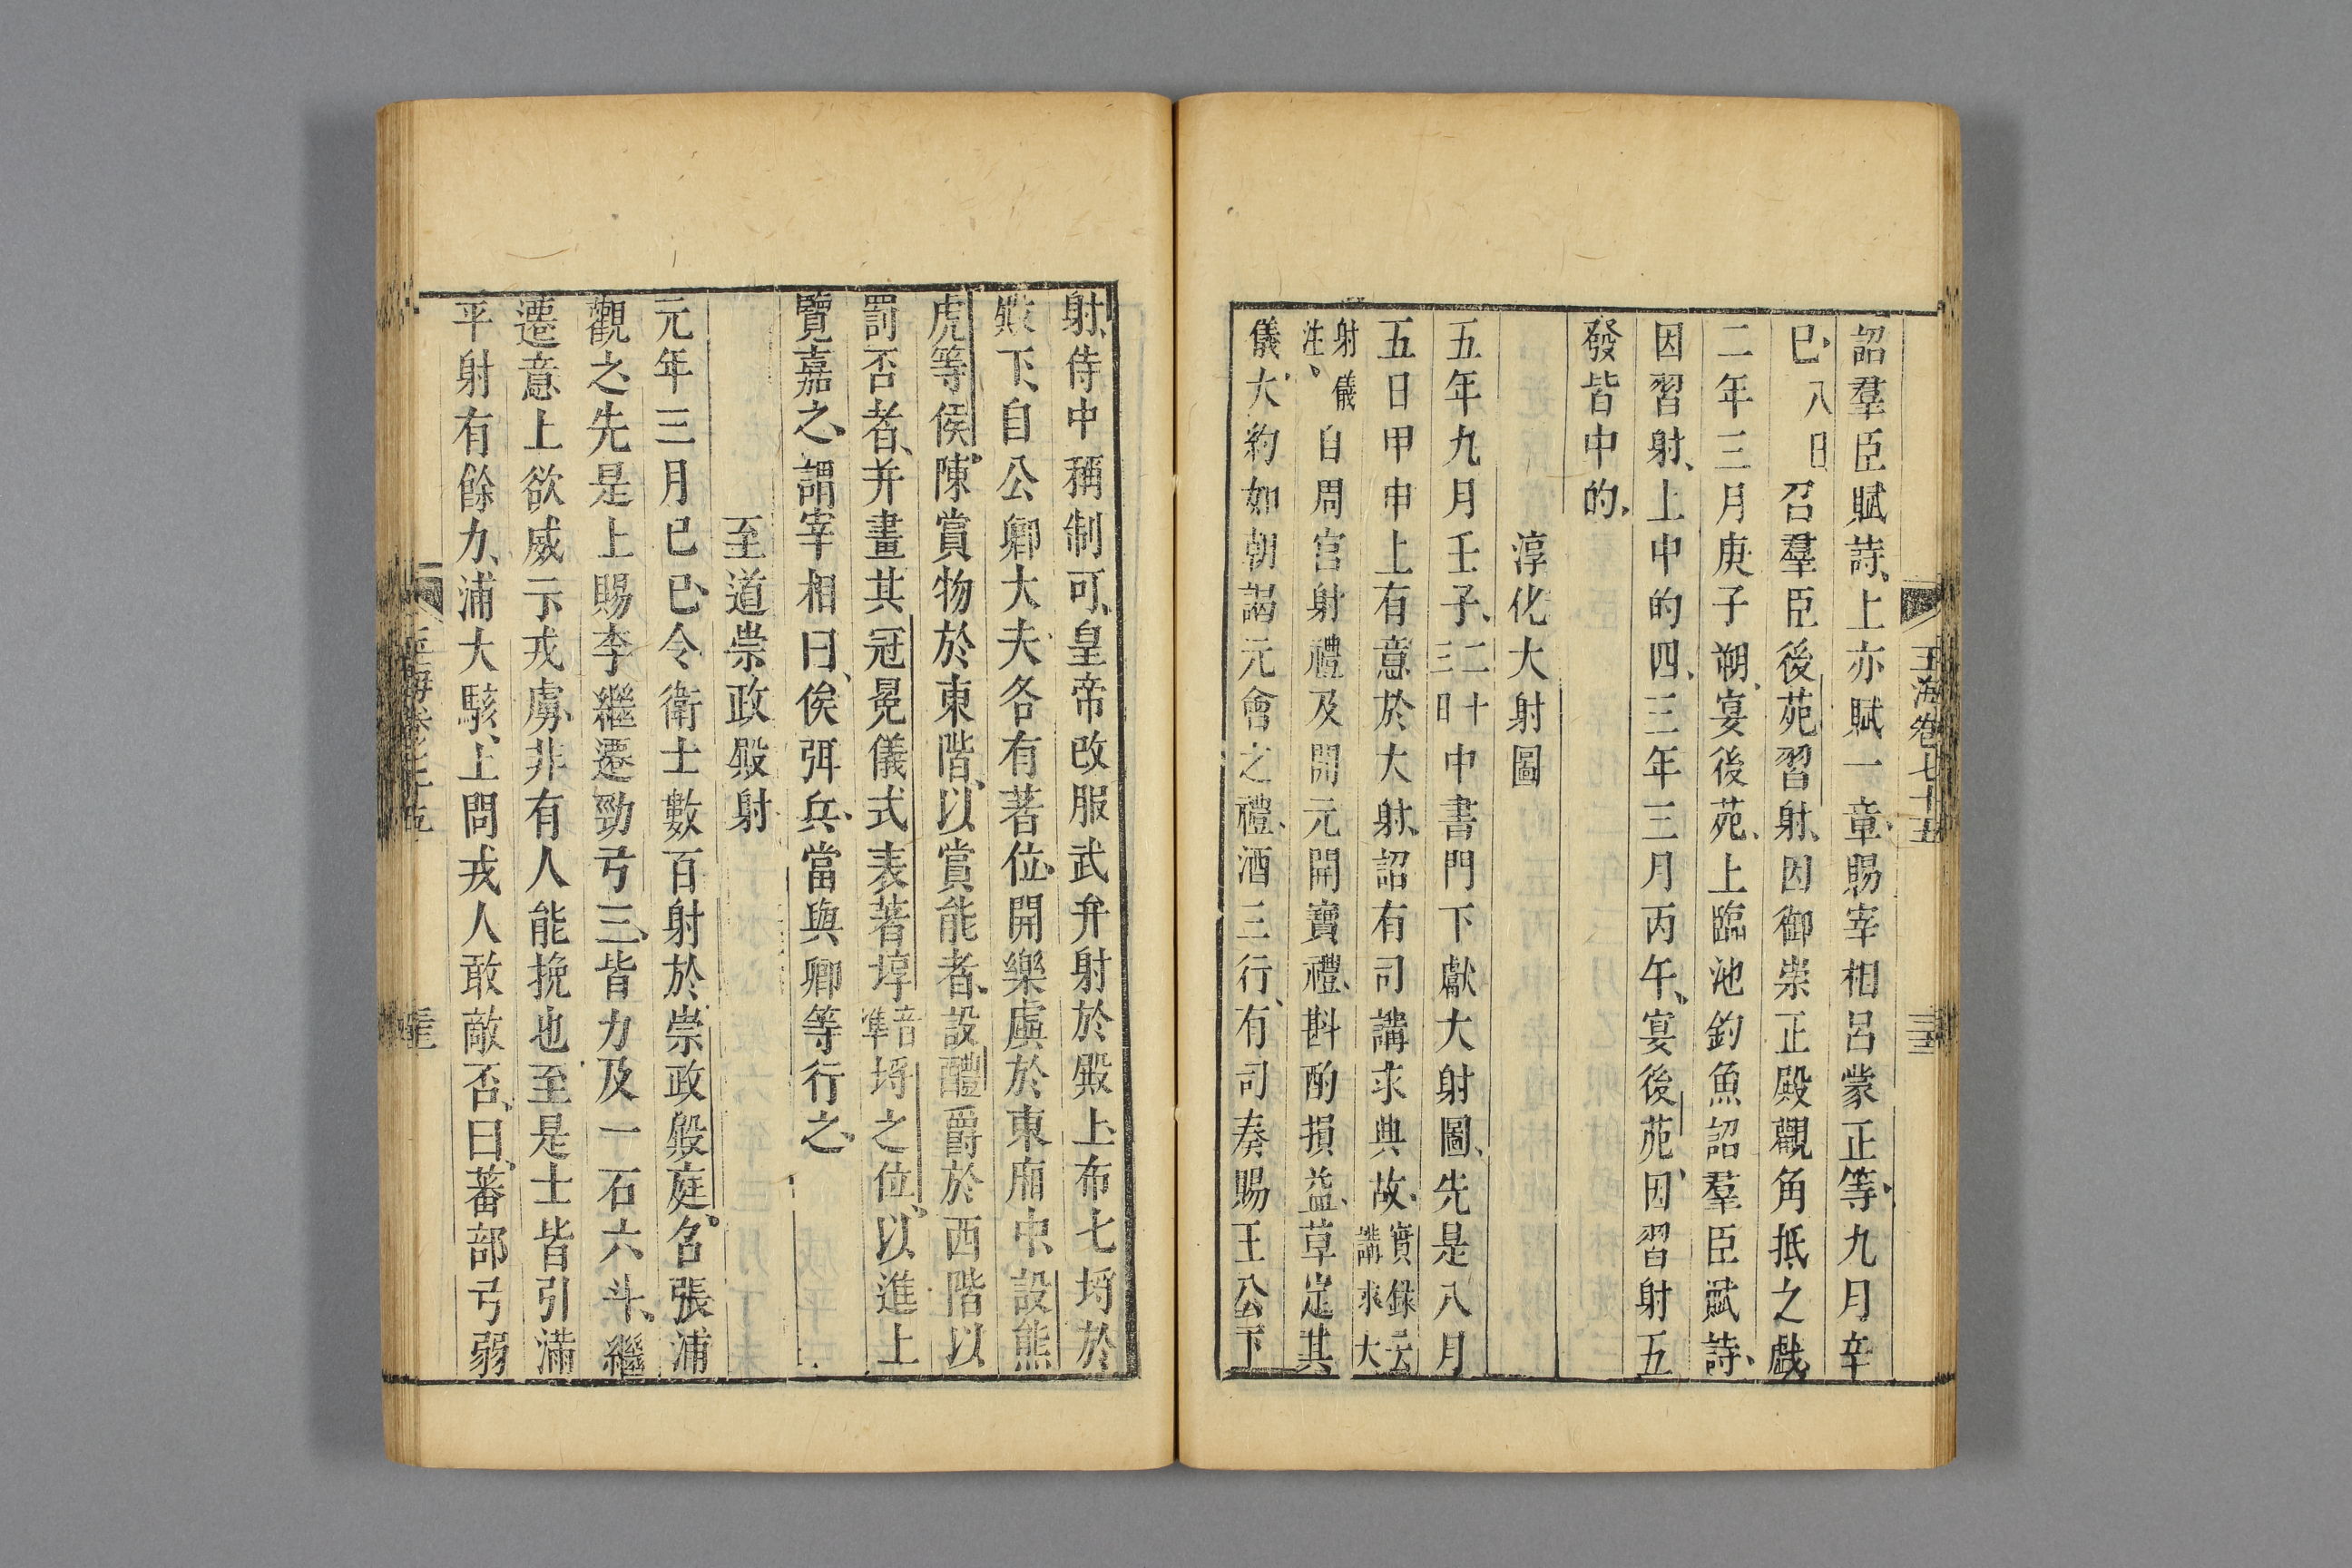 玉海卷七十五
詔羣臣賦詩上亦賦一章賜宰相呂蒙正等九月辛
巳八日召羣臣後苑習射因御崇正殿觀角抵之戲
二年三月庚子朔宴後苑上臨池釣魚詔羣臣賦詩
因習射上中的四三年三月丙午宴後苑因習射五
發皆中的
淳化大射圖
五年九月壬子二十三日中書門下獻大射圖先是八月
五日甲申上有意於大射詔有司講求典故實錄云講求大
射儀注自周官射禮及開元開寶禮斟酌損益草定其
儀大約如朝謁元會之禮酒三行有司奏賜王公下
射侍中稱制可皇帝改服武弁射於殿上布七埓於
殿下自公卿大夫各有著位開樂虡於東廂中設熊
虎等侯陳賞物於東階以賞能者設醴爵於西階以
罰否者并畫其冠冕儀式表著埻音準埓之位以進上
覽嘉之謂宰相曰俟弭兵當與卿等行之
至道崇政殿射
元年三月己巳令衛士數百射於崇政殿庭名張浦
觀之先是上賜李繼遷勁弓三皆力及一石六斗繼
遷意上欲威示戎虜非有人能挽也至是士皆引滿
平射有餘力浦大駭上問戎人敢敵否曰蕃部弓弱